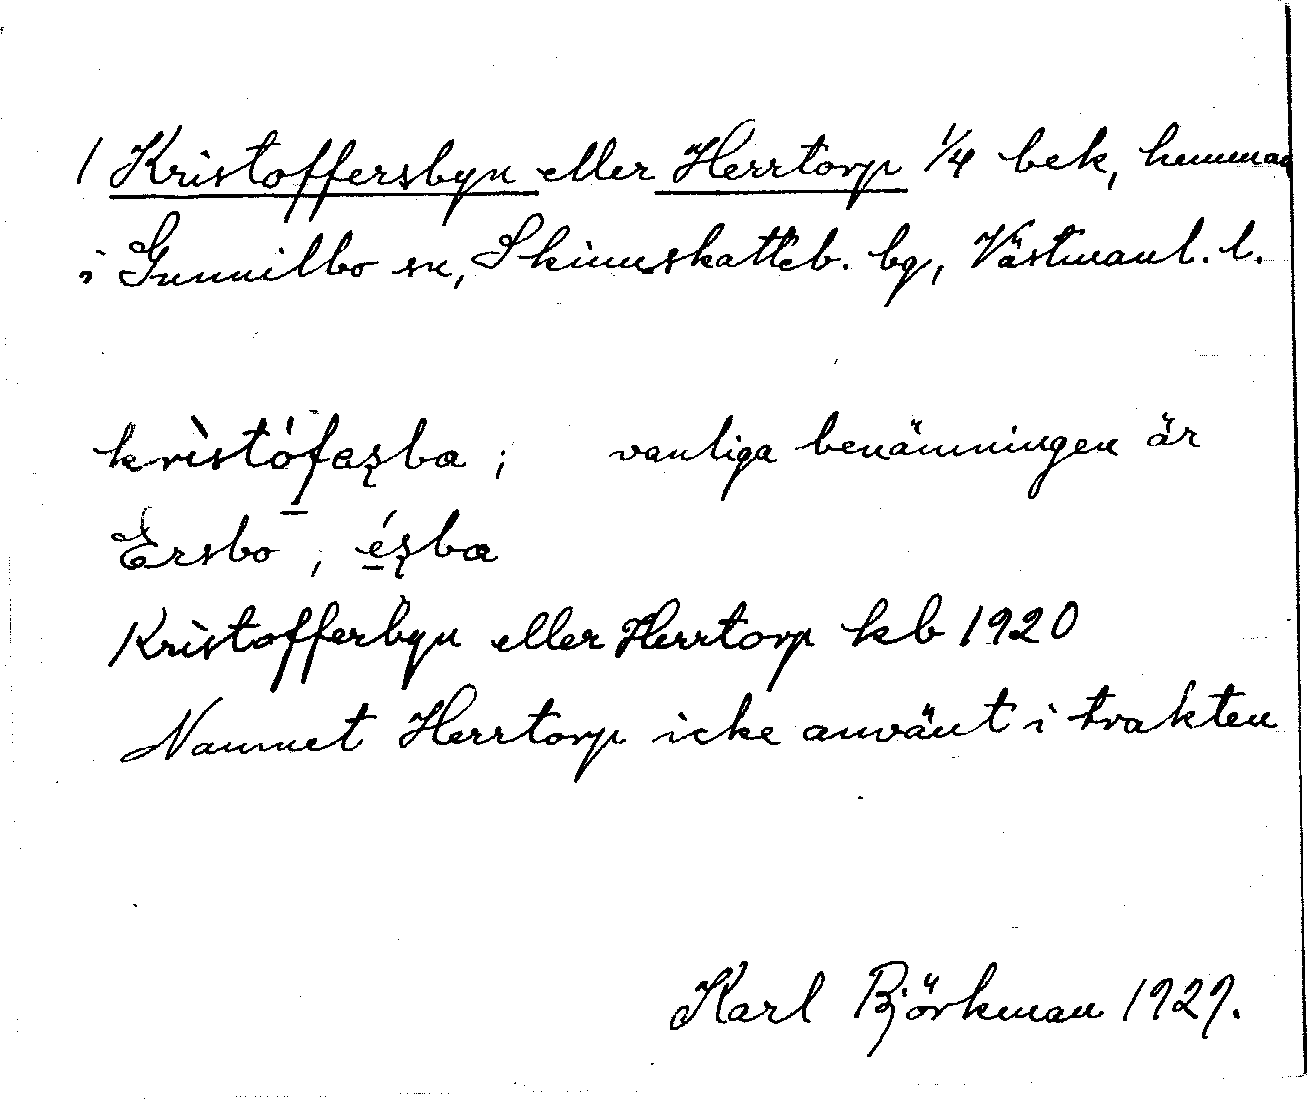 1 Kristoffersbyn eller Herrtorp 1/4 bek, hemman
i Gunnilbo sn, Skinnskatteb. bg, Västmanl. l.
krìstófaʂba ; vanliga benämningen är
Ersbo , éʂba
Kristofferbyn eller Herrtorp kb 1920
Namnet Herrtorp icke använt i trakten
Karl Björkman 1929.